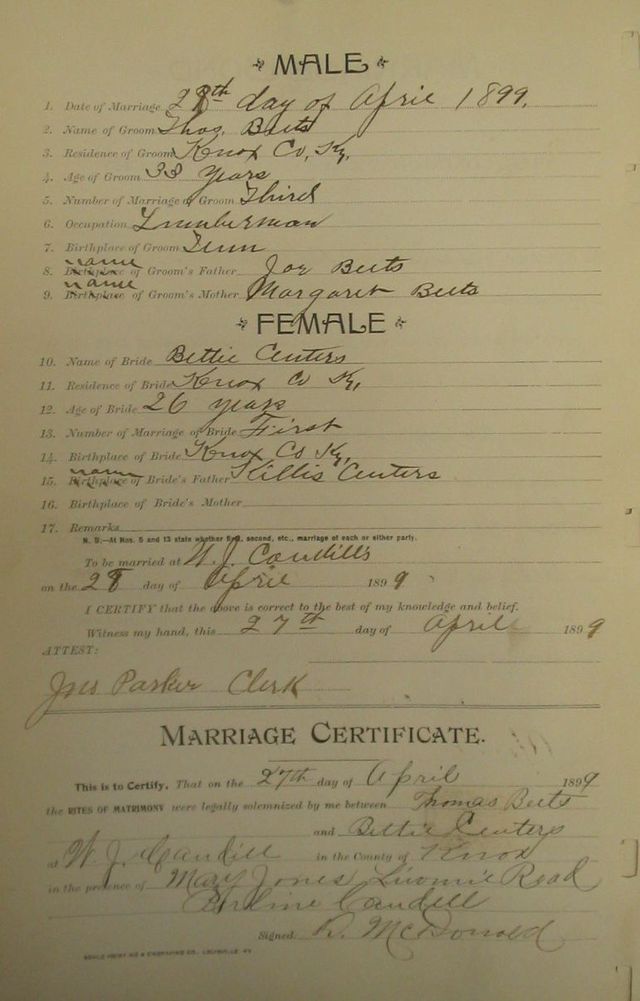 MALE
1. Date of Marriage 28th day of April 1899.
2. Name of Groom Thos. Beets
3. Residence of Groom Knox Co, Ky,
4. Age of Groom 38 years
5. Number of Marriage of Groom Third
6. Occupation Lumberman
7. Birthplace of Groom Tenn
8. Birthplace name of Groom's Father Joe Beets
9. Birthplace name of Groom's Mother Margaret Beets
FEMALE
10. Name of Bride Bettie Centers
11. Residence of Bride Knox Co Ky,
12. Age of Bride 26 years
13. Number of Marriage of Bride First
14. Birthplace of Bride Knox Co Ky,
15. Birthplace name of Bride's Father Killis Centers
16. Birthplace of Bride's Mother
17. Remarks
N. B.—At Nos. 5 and 13 state whether first, second, etc., marriage of each or either party.
To be married at W. J. Caudills
on the 28 day of April 1899
I CERTIFY that the above is correct to the best of my knowledge and belief.
Witness my hand, this 27th day of April 1899
ATTEST:
Jno Parker Clerk
MARRIAGE CERTIFICATE.
This is to Certify, That on the 27th day of April 1899
the RITES OF MATRIMONY were legally solemnized by me between Thomas Beets
and Bettie Centers
at W. J. Caudill in the County of Knox
in the presence of Mary Jones Road
Caudill
Signed. D. McDonald